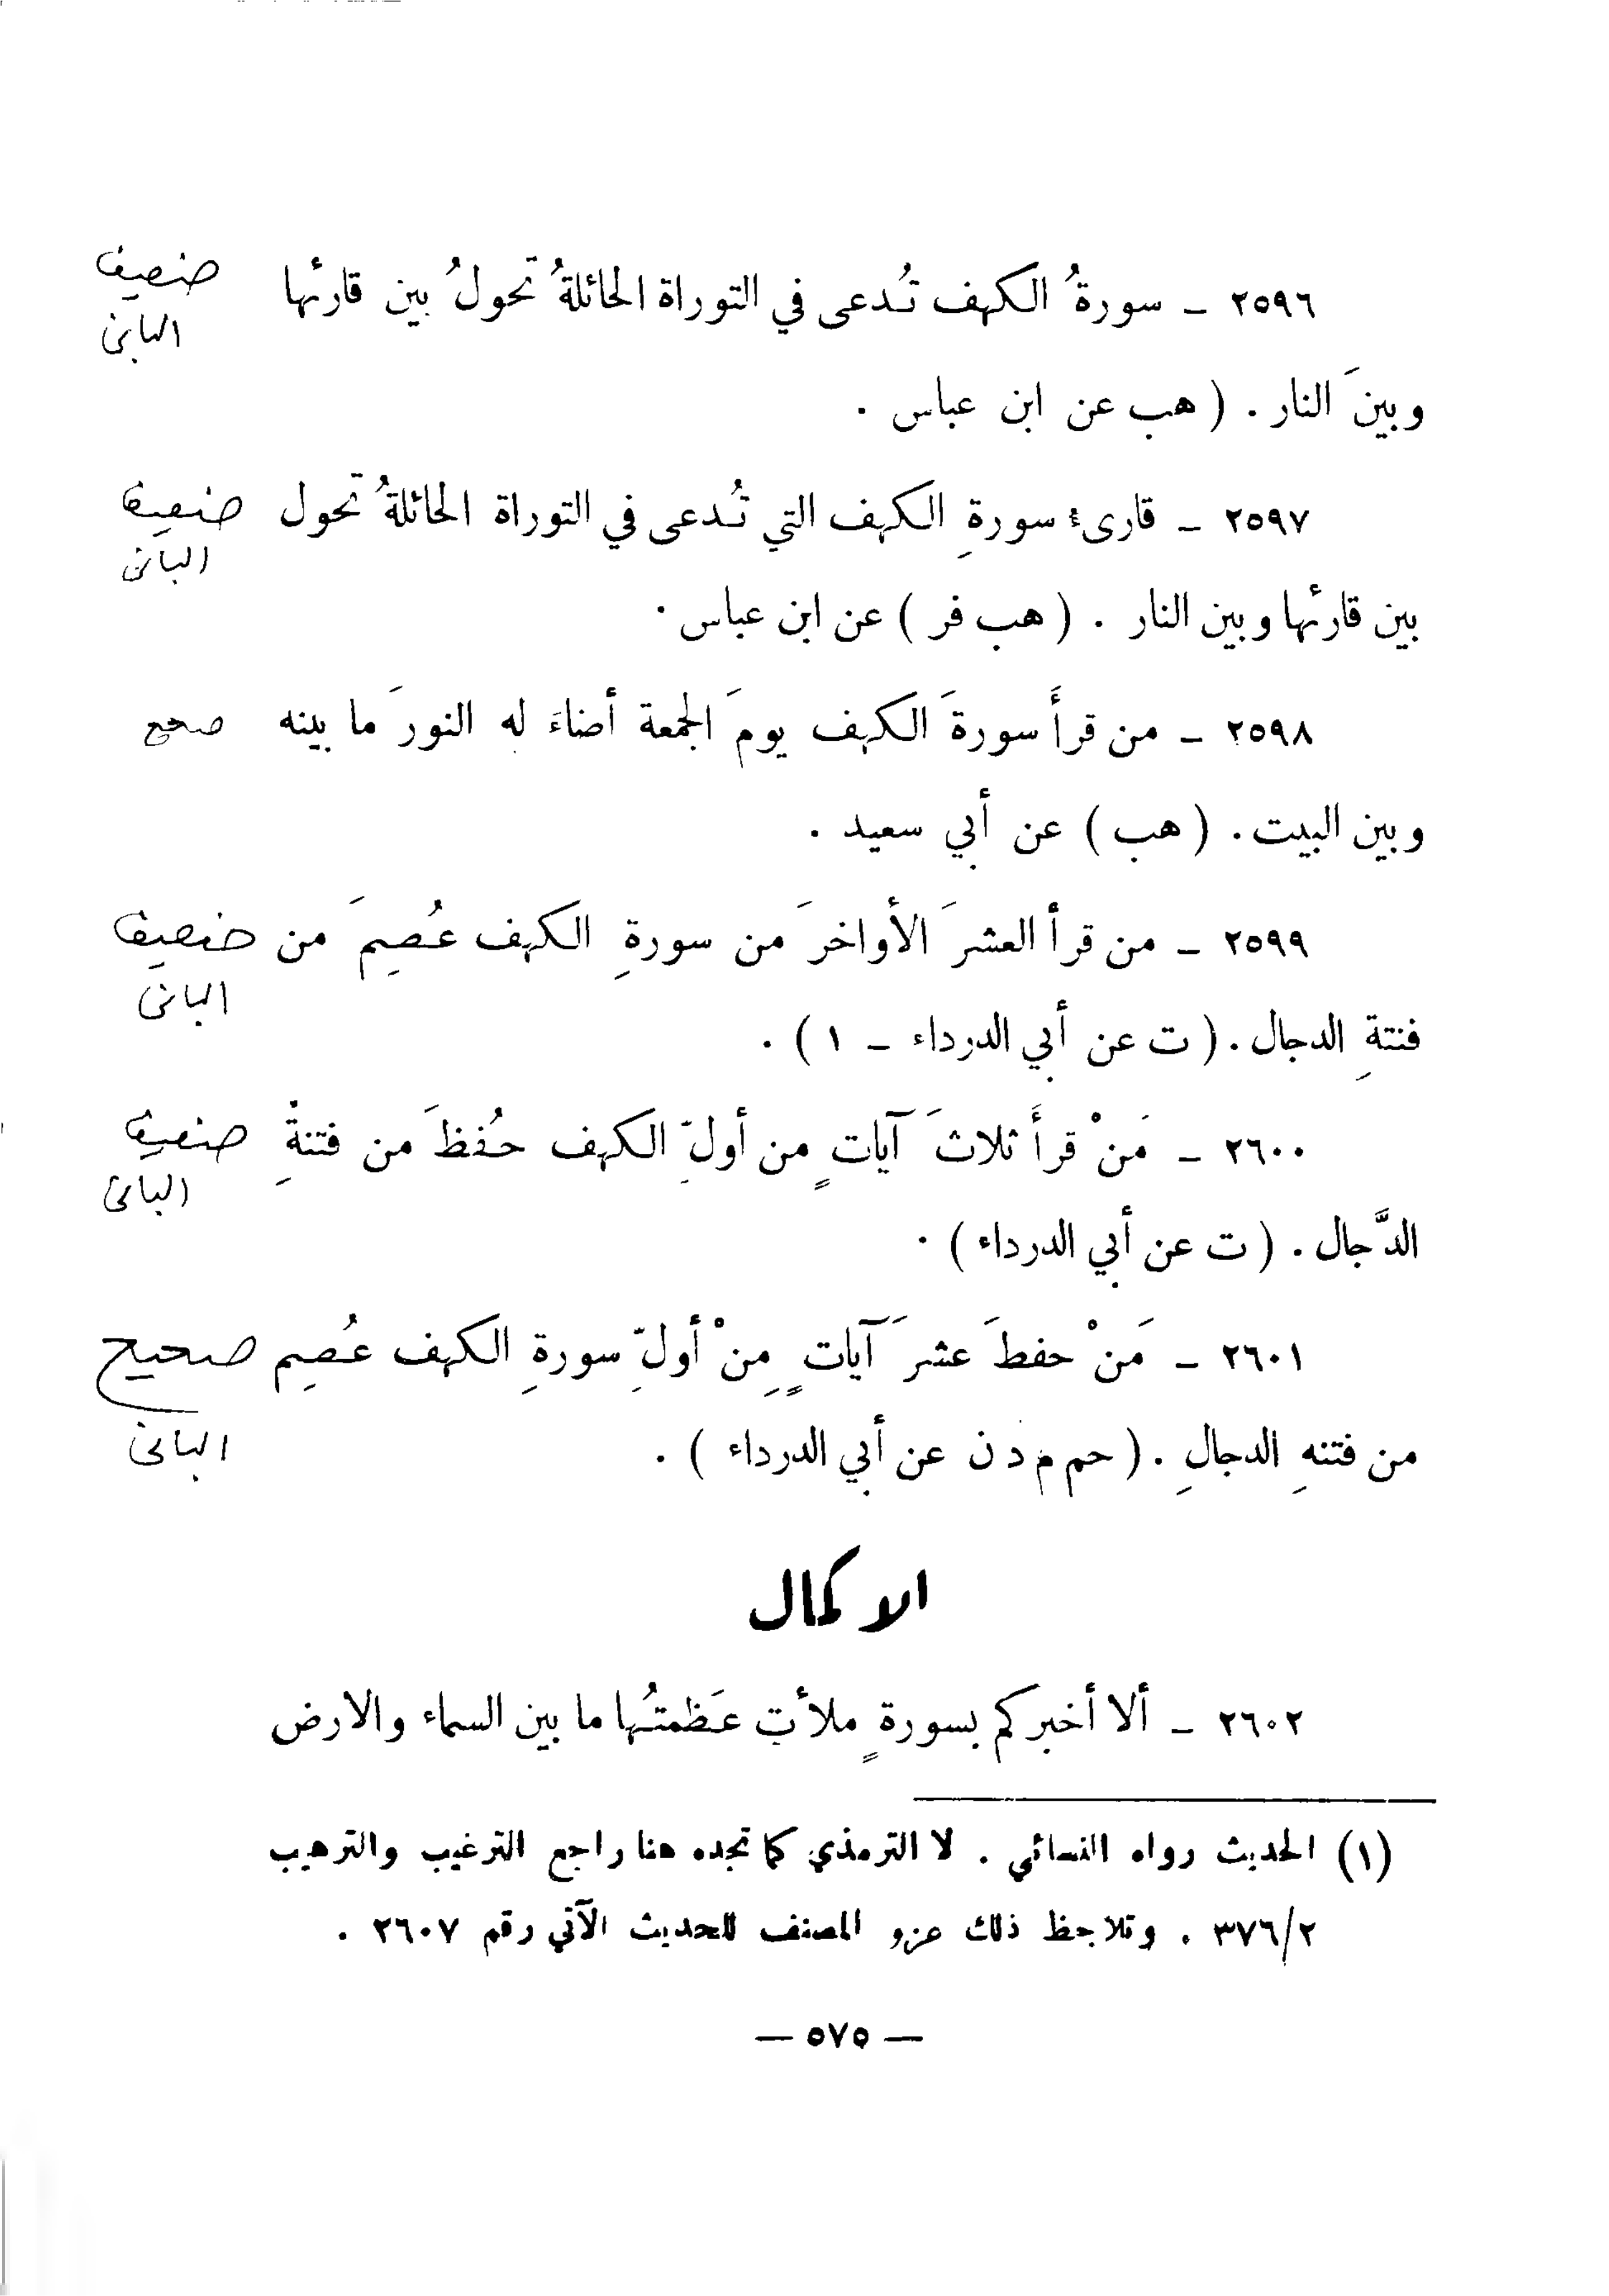 ٢٥٩٦ ــ سورةُ الكهف تُدعى في التوراة الحائلةُ تحولُ بين قارئها ضعيف
الباني
وبينَ النار . ( هب عن ابن عباس .
٢٥٩٧ ــ قارىء سورةِ الكهف التي تُدعى في التوراة الحائلةُ تحول ضعيف
الباني
بين قارئها وبين النار . ( هب فر ) عن ابن عباس .
٢٥٩٨ ــ من قرأَ سورةَ الكهف يومَ الجمعة أضاءَ له النورَ ما بينه صحيح
وبين البيت . ( هب ) عن أبي سعيد .
٢٥٩٩ ــ من قرأ العشرَ الأواخرَ من سورةِ الكهف عُصِمَ من ضعيف
الباني
فنتةِ الدجال . ( ت عن أبي الدرداء ــ ١ ) .
٢٦٠٠ ــ مَنْ قرأَ ثلاثَ آياتٍ من أولِّ الكهف حُفظَ من فتنةِ ضعيف
الباني
الدَّجال . ( ت عن أبي الدرداء ) .
٢٦٠١ ــ مَنْ حفظَ عشرَ آياتٍ مِنْ أولِّ سورةِ الكهف عُصِم صحيح
الباني
من فتنهِ الدجالِ . ( حم م د ن عن أبي الدرداء ) .
الاكمال
٢٦٠٢ ــ ألا أخبركم بسورةٍ ملأت عَظمتُها ما بين السماء والارض
(١) الحديث رواه النسائي . لا الترمذي كما تجده هنا راجع الترغيب والترهيب
٣٧٦/٢ . وتلاحظ ذلك عزو المصنف للحديث الآتي رقم ٢٦٠٧ .
— ٥٧٥ —